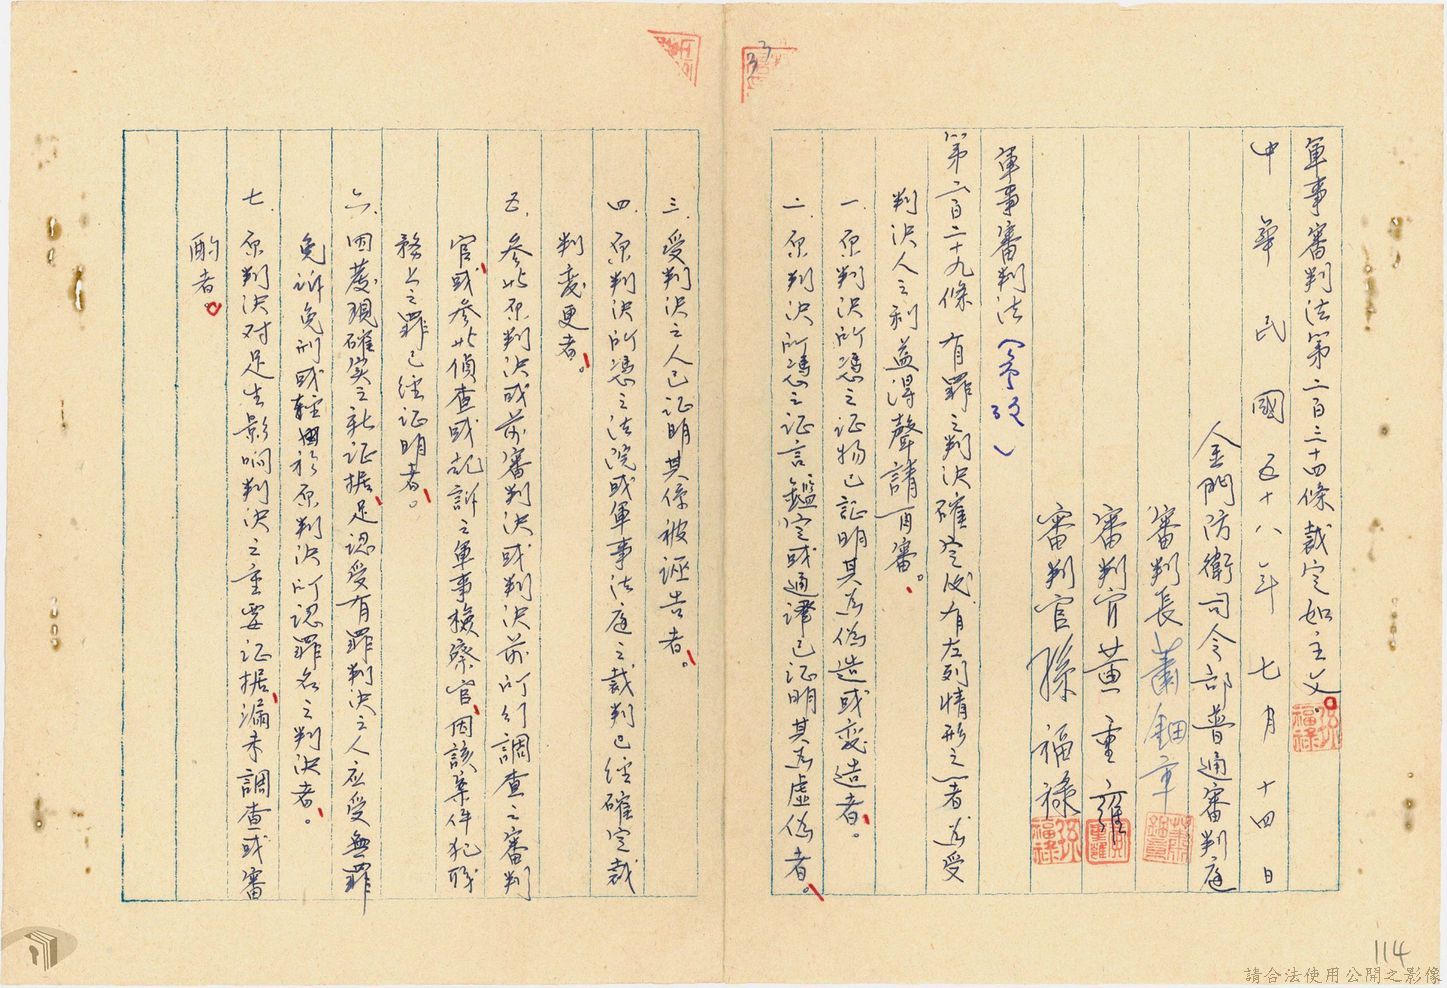 33
軍事審判法第二百三十四條裁定如主文。
孫福祿
中華民國五十八年七月十四日
金門防衛司令部普通審判庭
審判長蕭鈿章
審判官黃重
審判官孫福祿
孫福祿
軍事審判法（參攷）
第二百二十九條 有罪之判決確定後有左列情形之一者為受
判決人之利益得聲請再審。
一、原判決所憑之证物已証明其為偽造或变造者。
二、原判決所憑之证言鑑定或通譯已证明其為虛偽者。
三、受判決之人已证明其係被誣告者。
四、原判決所憑之法院或軍事法庭之裁判已經確定裁
判变更者。
五、參與原判決或前審判決或判決前所行調查之審判
官或參與偵查或起訴之軍事檢察官因該案件犯職
務上之罪已经证明者。
六、因發現確实之新证据足認受有罪判決之人应受無罪
免訴免刑或輕於原判決所認罪名之判決者。
七、原判決对足生影响判決之重要证据漏未調查或審
酌者。
114
請合法使用公開之影像